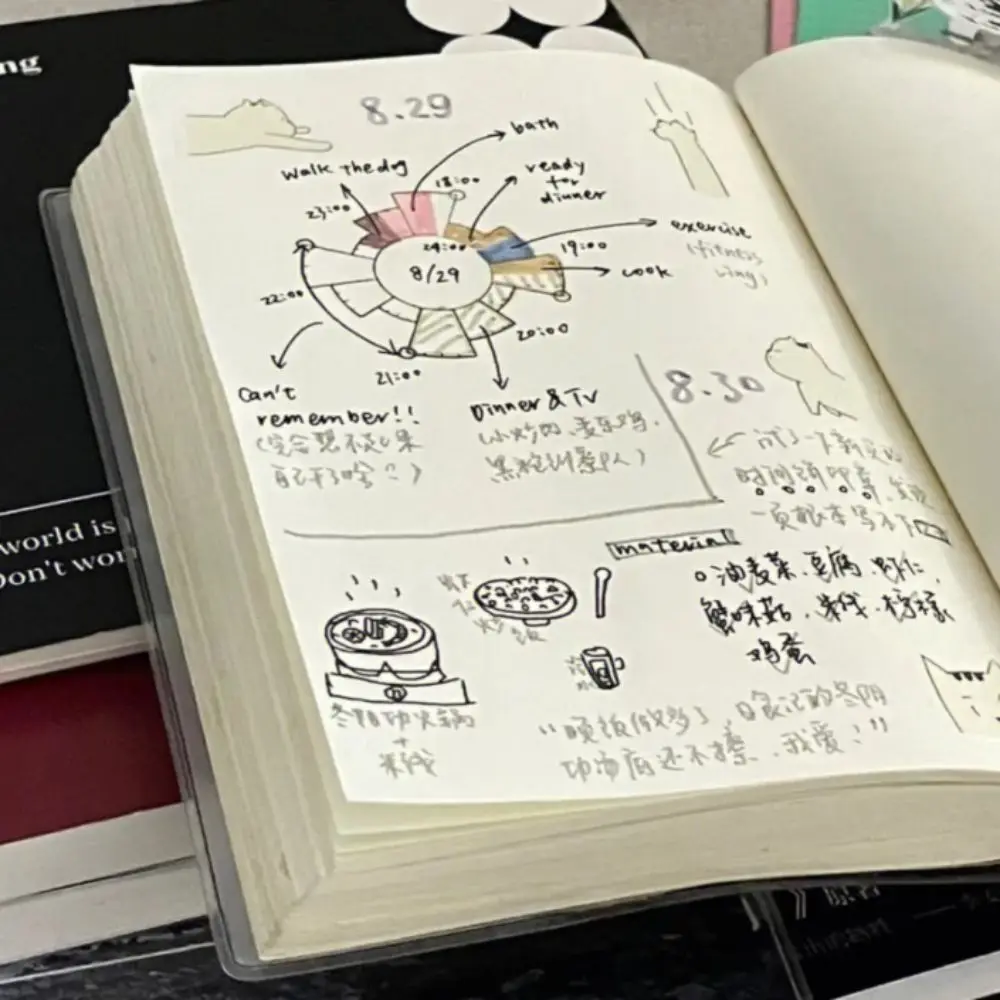 ng
8.29
bath
walk the dog
ready
for
dinner
18:00
23:00
24:00
8/29
exercise
(fitness
19:00
cook
22:00
20:00
21:00
Can't
remember!!
Dinner & TV
(完全想不起来
自己干了啥
(小炒肉、麦乐鸡、
黑袍纠察队)
8.30
试了一下新买的
时间轴印章,发现
一页根本写不下
material
油麦菜、豆腐、虾仁、
蟹味菇、米线、
鸡蛋
炒饭
冬阴功火锅
+
米线
"晚饭做多了,日食记的冬阴
功汤底还不错,我爱!"
world is
Don't wor